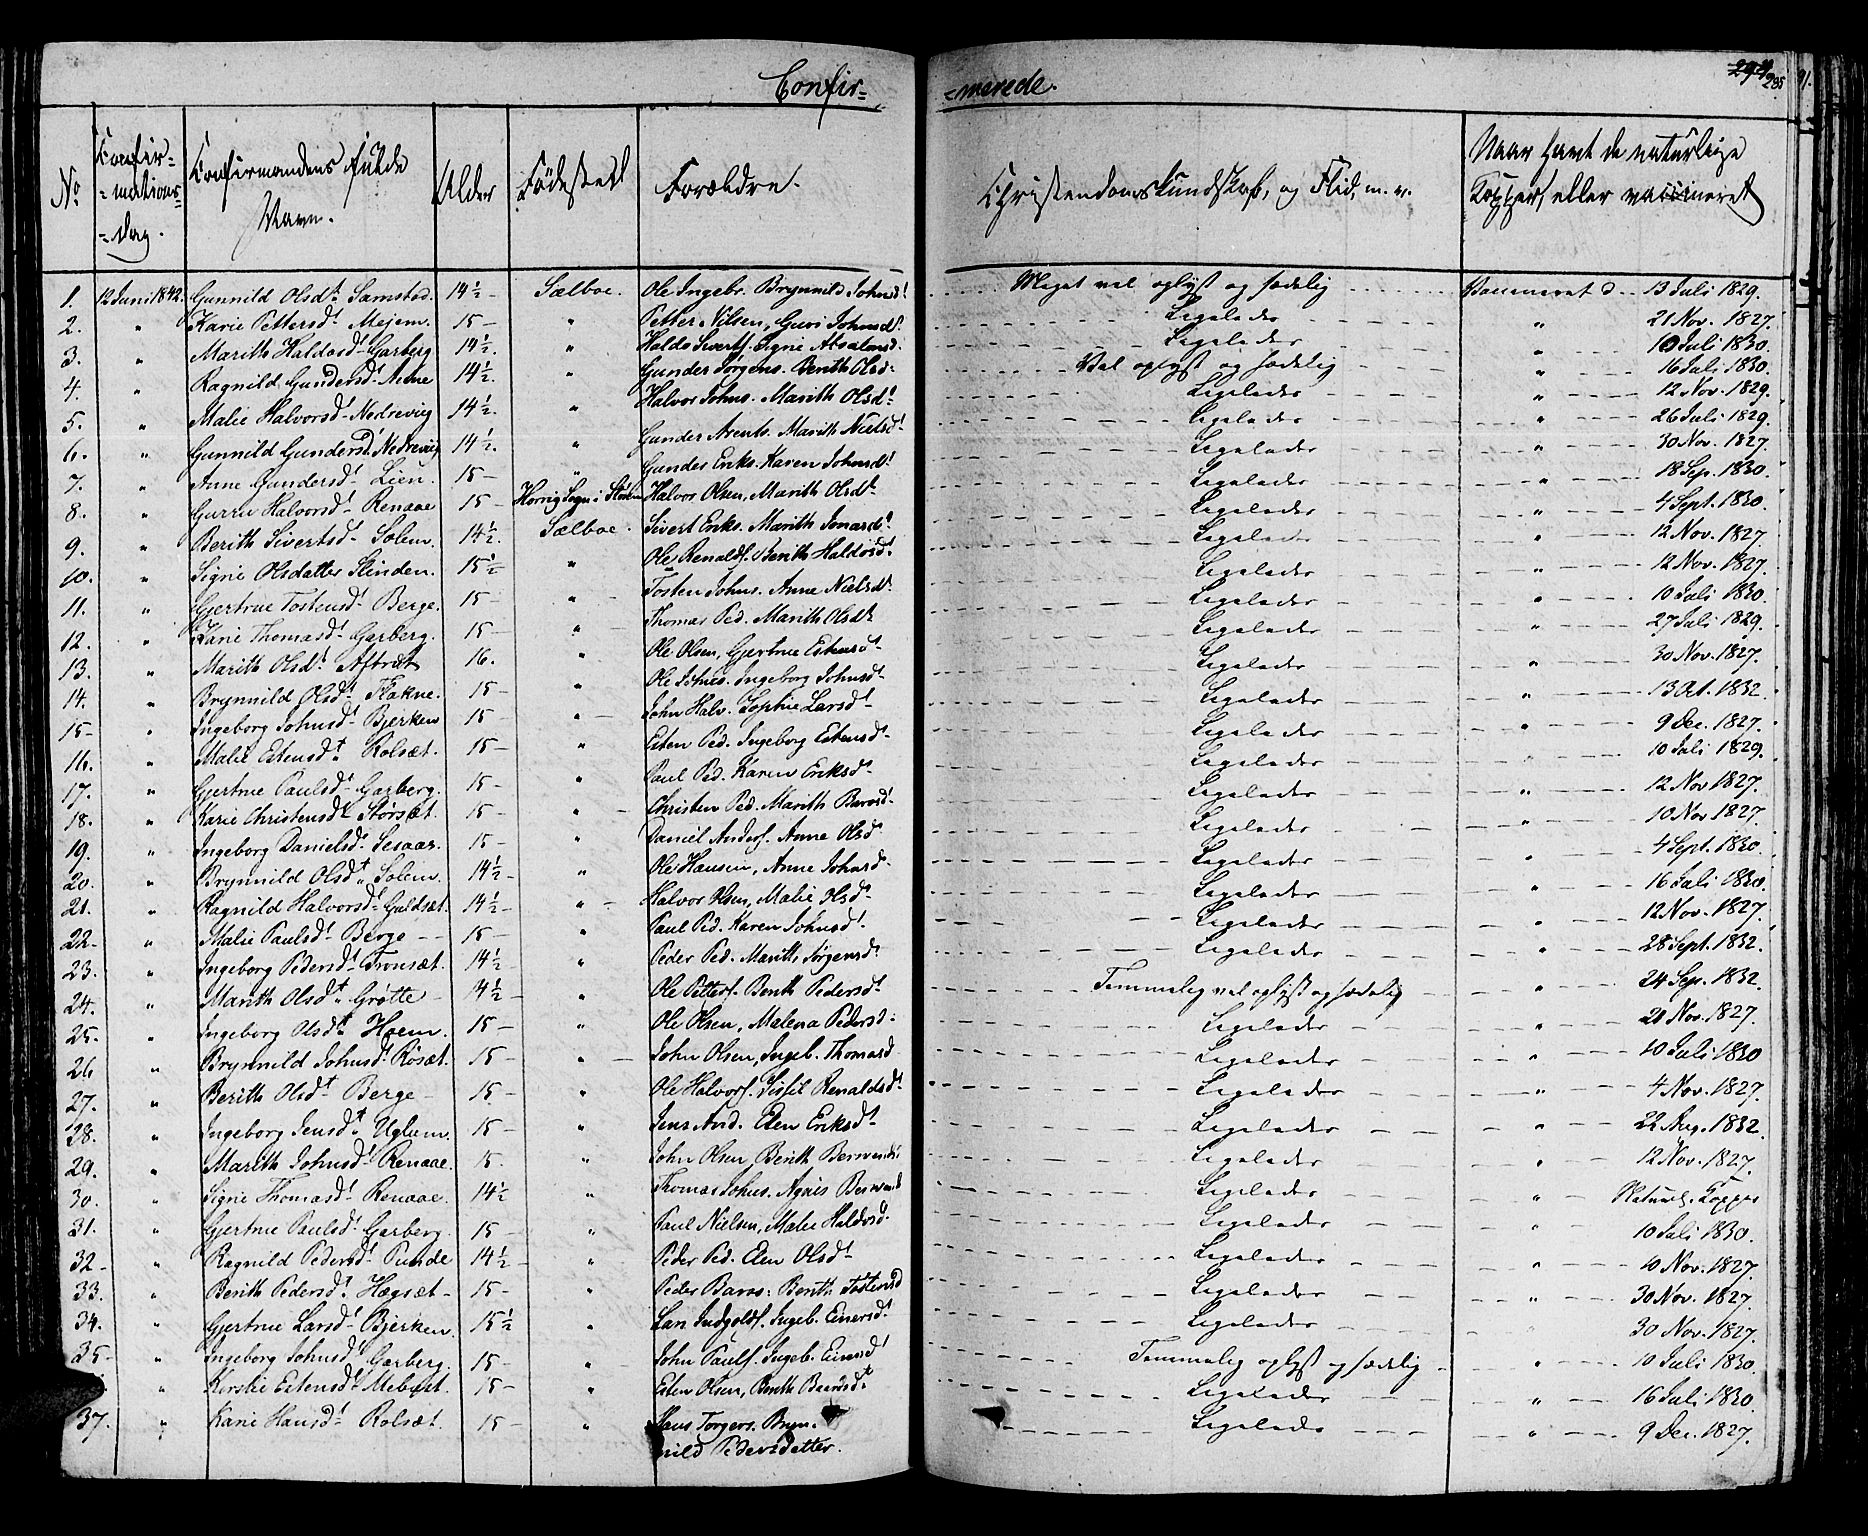 Confir=
=merede.
294 285
91.
No
Confir=
=mations=
=dag.
Confirmandens fulde
Navn.
Alder
Fødested
Forældre.
Christendoms Kundskab, og Flid, m. v.
Naar havt de naturlige
Kopper, eller vaccineret
1. 12 Juni 1842. Gunnild Olsdt Samstad. 14½ - Sælboe. Ole Ingebr. Brynnild Johnsdt Meget vel oplyst og sædelig Vaccineret d. 13 Juli 1829.
2. " Karie Pettersdt Mejem. 15 - " Petter Nilsen, Guri Johnsdt. Ligeledes " 21 Nov. 1827.
3. " Marith Haldosdt Garberg 14½. " Haldo Siverts. Signe Absalonsd. Ligeledes " 10 Juli 1830.
4. " Ragnild Gundersdt Aune 14½. " Gunder Jørgens. Berith Olsd. Vel oplyst og sædelig " 16 Juli 1830.
5. " Malie Halvorsdt Nedrevig 14½. " Halvor Johns. Marith Olsdt Ligeledes " 12 Nov. 1829.
6. " Gunnild Gundersdt Nedrevig 14½. " Gunder Arents. Marith Nielsdt Ligeledes " 26 Juli 1829.
7. " Anne Gundersdt Lien. 15 - " Gunder Eriks. Karen Johnsdt Ligeledes " 30 Nov. 1827.
8. " Gurru Halvorsdt Renaae 15 - Horrig Sogn i Støren Halvor Olsen, Marith Olsdt Ligeledes " 18 Sep. 1830.
9. " Berith Sivertsdt Solem. 14½. Sælboe. Sivert Eriks. Marith Jonasdt Ligeledes " 4 Sept. 1830.
10. " Signe Olsdatter Slinden. 15½ " Ole Renalds. Berith Haldosdt Ligeledes " 12 Nov. 1827.
11. " Gjertrue Tostensdt Berge. 15 - " Tosten Johns. Anne Nielsdt Ligeledes " 12 Nov. 1827.
12. " Karie Thomasdt Garberg. 15 - " Thomas Ped. Marith Olsdt Ligeledes " 10 Juli 1830.
13. " Marith Olsdt Aftret 16. " Ole Olsen, Gjertrue Estensdt Ligeledes " 27 Juli 1829.
14. " Brynnild Olsdt Flakne. 15 - " Ole Johns. Ingeborg Johnsdt Ligeledes " 30 Nov. 1827.
15 - " Ingeborg Johnsdt Bjerken 15 - " John Halv. Sophie Larsdt Ligeledes " 13 Oct. 1832
16. " Malie Estensdt Rolsæt. 15 - " Esten Ped. Ingeborg Estensdt Ligeledes " 9 Dec. 1827.
17. " Gjertrue Paulsdt Garberg. 15 - " Paul Ped. Karen Eriksdt Ligeledes " 10 Juli 1829.
18. " Karie Christensdt Storsæt. 15 - " Christen Ped. Marith Barosdt Ligeledes " 12 Nov 1827.
19. " Ingeborg Danielsdt Sesaas. 15 - " Daniel Anders. Anne Olsdt Ligeledes " 10 Nov 1827.
20. " Brynnild Olsdt Solem. 14½ - " Ole Hansen, Anne Johnsdt Ligeledes " 4 Sept. 1830.
21. " Ragnild Halvorsdt Guldsæt. 14½ - " Halvor Olsen, Malie Olsdt Ligeledes " 16 Juli 1830.
22 - " Malie Paulsdt Berge 15 - " Paul Ped. Karen Johnsdt. Ligeledes " 12 Nov. 1827.
23. " Ingeborg Pedersdt Tronsæt. 14½ " Peder Ped. Marith Jørgensdt Ligeledes " 28 Sept. 1832.
24. " Marith Olsdt Grøtte 14½ - " Ole Petters. Berith Pedersdt Temmelig vel oplyst og sædelig " 24 Sep. 1832.
25. " Ingeborg Olsdt Hoem. 15 - " Ole Olsen, Malena Pedersd. Ligeledes " 21 Nov. 1827.
26 " Brynnild Johnsdt Rosæt. 15 - " John Olsen, Ingeb. Thomasd Ligeledes " 10 Juli 1830
27. " Berith Olsdt Berge 15 - " Ole Halvors. Sissil Renaldsdt Ligeledes " 4 Nov. 1827.
28. " Ingeborg Jensdt Uglem. 15 - " Jens And. Elen Eriksdt Ligeledes " 22 Aug. 1832.
29. " Marith Johnsdt Renaae. 15. " John Olsen, Berith Ligeledes " 12 Nov. 1827.
30. " Signe Thomasdt Renaae. 14½ " Thomas Johns. Agnis Ligeledes " Naturl. Kopper
31. " Gjertrue Paulsdt Garberg. 15 - " Paul Nielsen, Malie Haldosd. Ligeledes " 10 Juli 1830.
32 - " Ragnild Pedersdt Punde 14½ - " Peder Ped. Elen Olsdt Ligeledes " 10 Nov. 1827.
33. " Berith Pedersdt Hægsæt 15 - " Peder Baros. Berith Tostensd Ligeledes " 30 Nov. 1827.
34. " Gjertrue Larsdt Bjerken. 15½ " Lars Ingebr. Einersdt Ligeledes 30 Nov. 1827.
35 - " Ingeborg Johnsdt Garberg. 15 - " John Pauls. Ingeb. Einersdt Temmelig oplyst og sædelig " 10 Juli 1830.
" Kirstie Estensdt Mebust. 15 - " Esten Olsen, Berith Baardsdt Ligeledes " 16 Juli 1830.
37. " Karie Hansdt Rolsæt. 15 - " Hans Torgers. Bryn- Ligeledes " 9 Dec. 1827.
nild Pedersdatter.